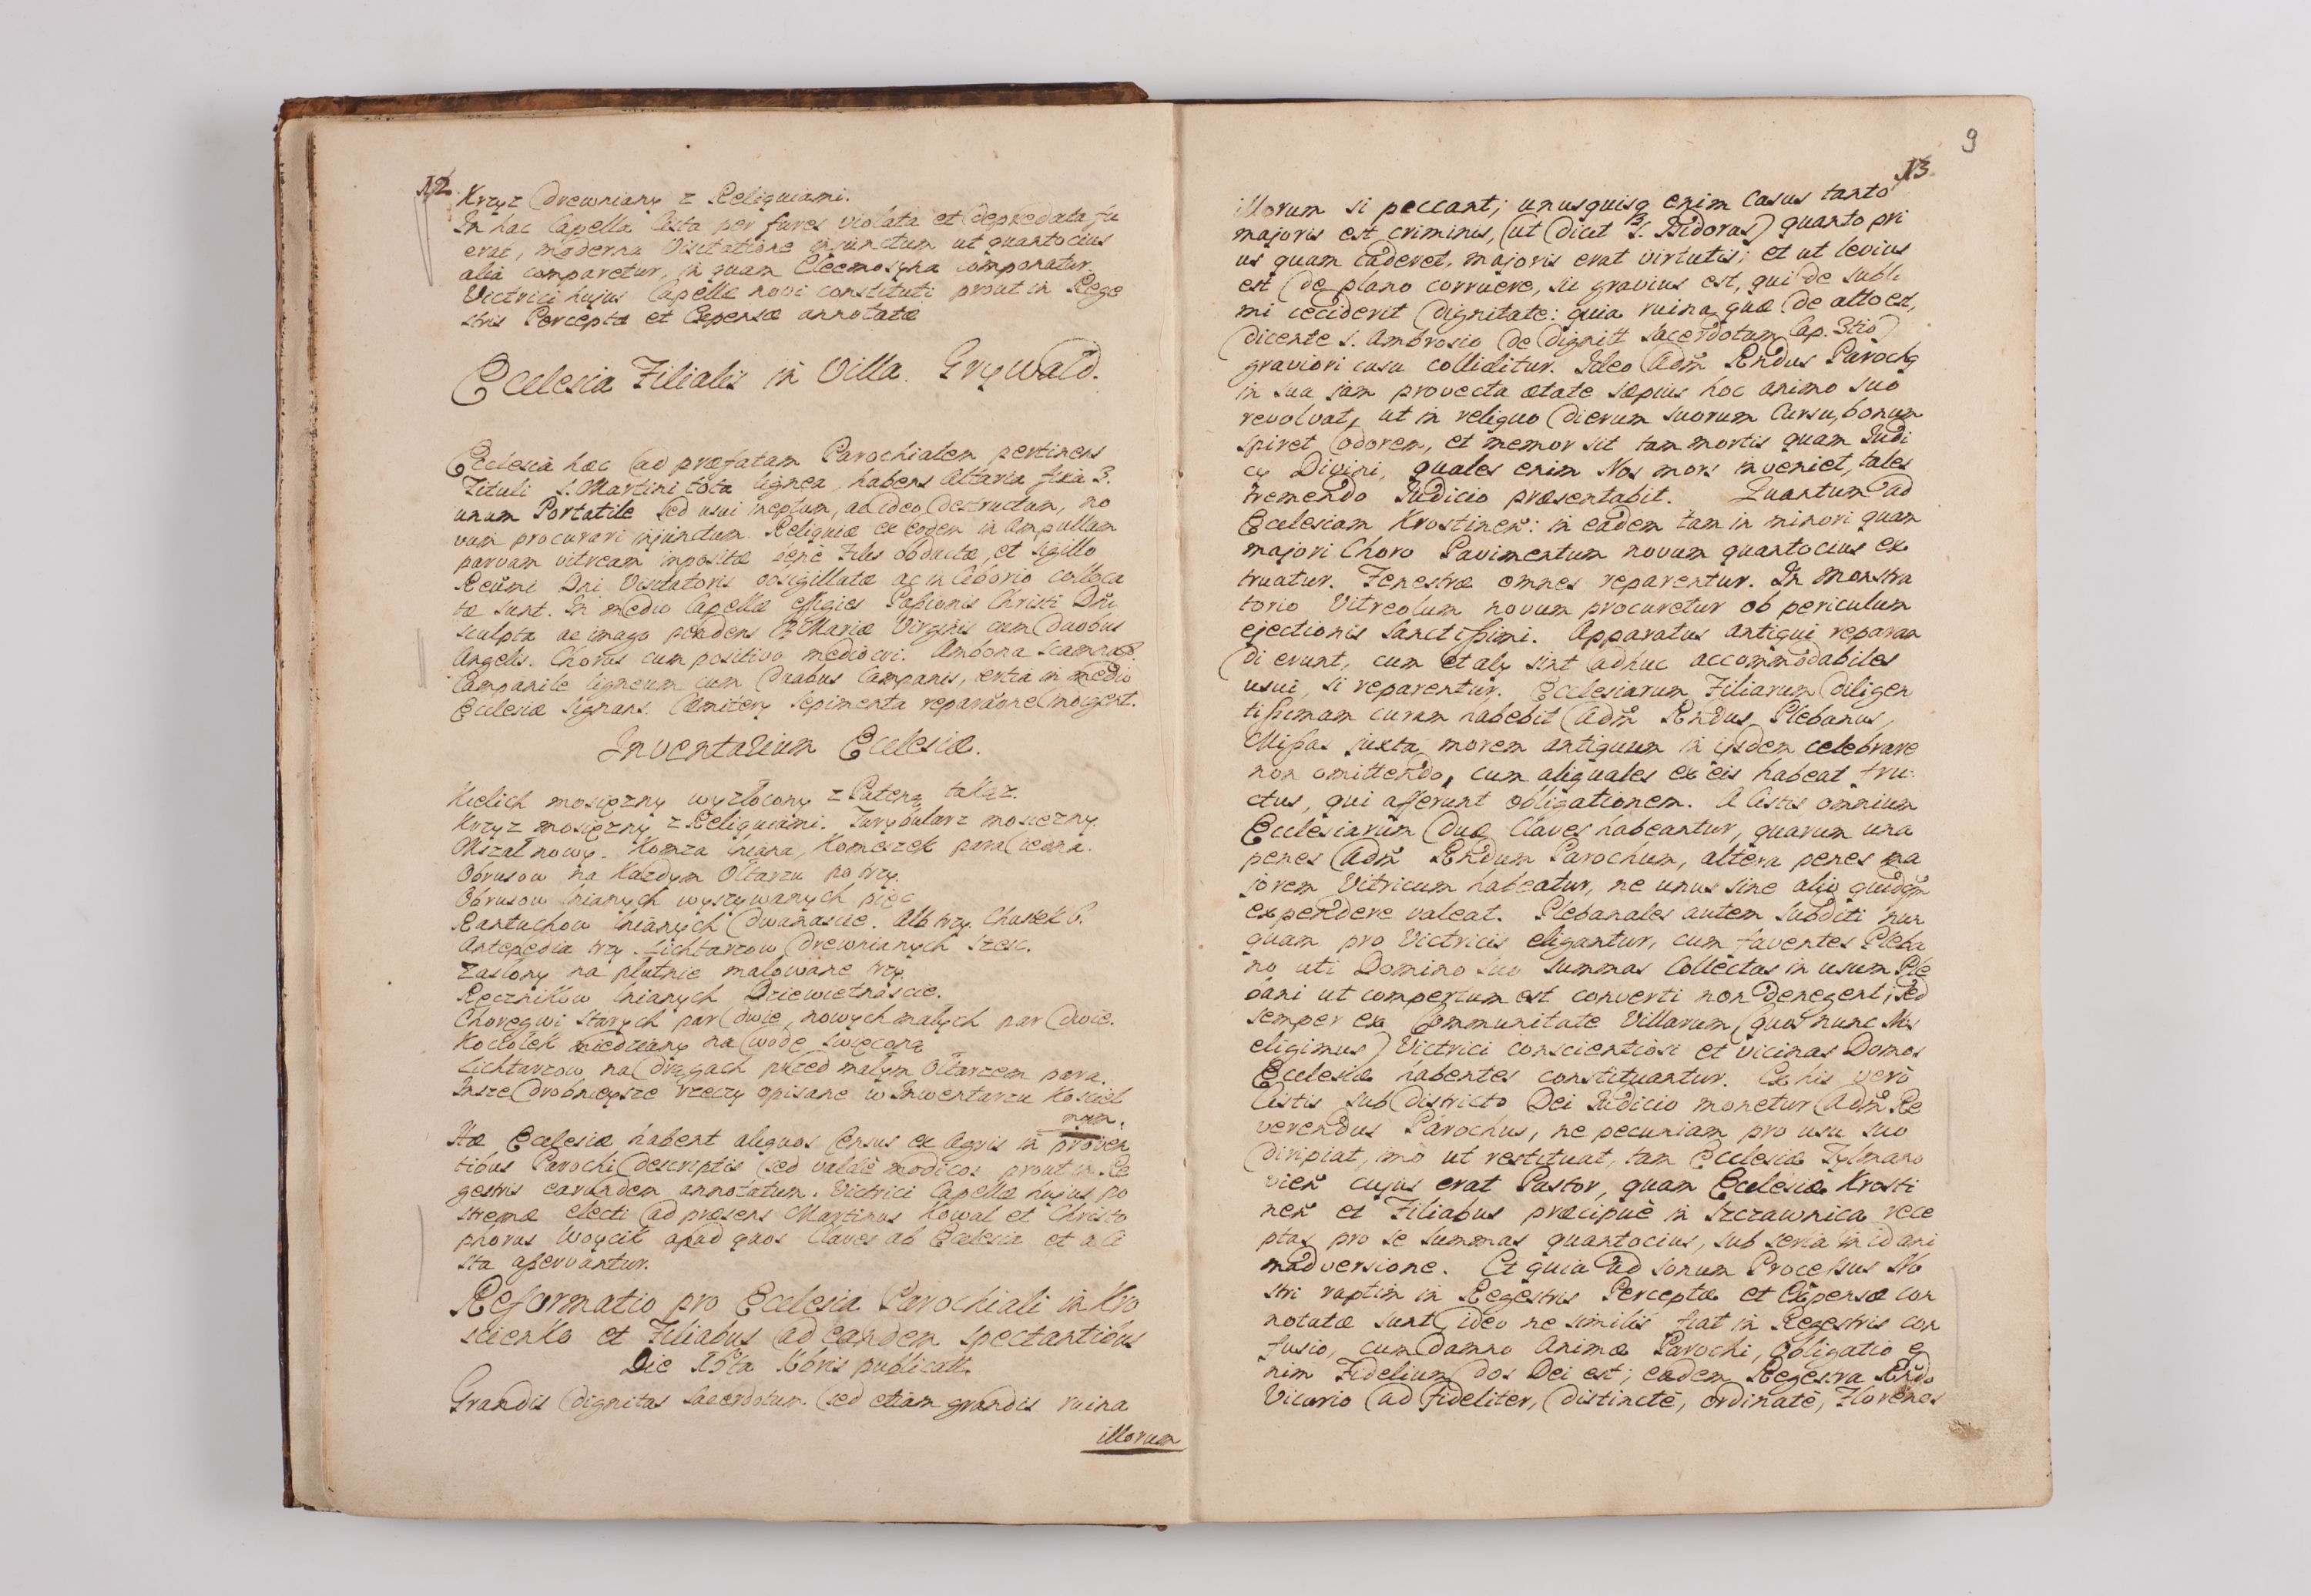 12.
Krzyz Drewniany z Reliquiami.
In hac Capella Cista per fures violata et depredata fu
erat, moderna Visitatione injunctum ut quantocius
alia comparetur, in quam Eleemosyna componatur.
Victrici hujus Capellæ novi constituti prout in Rege
stris Perceptæ et Expensæ annotatæ
Ecclesia Filialis in Villa Grywald.
Ecclesia hæc ad præfatam Parochialem pertinens
Tituli S. Martini tota lignea, habens Altaria fixa 3.
unum Portatile sed usui ineptum, ac ideo destructum, no
vum procurari injunctum. Reliquiæ ex eodem in Ampullam
parvam vitream impositæ benè Filis obductæ, et sigillo
Reumi Dni Visitatoris obsigillatæ ac in Ciborio colloca
tæ sunt. In medio Capellæ effigies Passionis Christi Dni
sculpta ac imago pendens B Mariæ Virginis cum duobus
Angelis. Chorus cum positivo mediocri. Ambona Scamna
Campanile ligneum cum duabus Campanis, tertia in medio
Ecclesiæ signans. Cæmitery sepimenta reparatione indigent.
Inventarium Ecclesiæ.
Kielich mosięzny wyzłocony z Pateną takąz.
Krzyz mosięzny z Reliquiami. Turybularz mosiezny.
Mszał nowy. Komza lniana, Komeszek para iedna.
Obrusow na Kazdym Ołtarzu po trzy.
Obrusow lnianych wyszywanych pięc
Rantuchow lnianych dwanascie. Alb trzy. Chustek 6.
Antepedia trzy. Lichtarzow drewnianych szesc.
Zasłony na płutnie malowane trzy.
Ręcznikow lnianych Dziewietnascie.
Choręgwi starych par dwie, nowych małych par dwie.
Kociołek miedziany na wodę swięconą
Lichtarzow na drągach przed małym Ołtarzem para.
Insze drobnieysze rzeczy opisane w Inwentarzu Koscieł
nym.
Hæ Ecclesiæ habent aliquos Census ex Agris in proven
tibus Parochi descriptis sed valdè modicos prout in Re
gestris earundem annotatum. Victrici Capellæ hujus po
stremæ electi ad præsens Martinus Kowal et Christo
phorus Woycik apud quos Claves ab Ecclesia et a Ci
sta asservantur.
Reformatio pro Ecclesia Parochiali in Kro
scienko et Filiabus ad eandem spectantibus
Die Xbris publicata
Grandis dignitas Sacerdotum sed etiam grandis ruina
illorum
9
13.
illorum si peccant; unusquisq enim casus tanto
majoris est criminis, (ut dicit S. Isidorus) quanto pri
us quam caderet, majoris erat virtutis; et ut levius
est de plano corruere, sic gravius est, qui de subli
mi ceciderit dignitate: quia ruina quæ de alto est,
dicente S. Ambrosio de dignitt Sacerdotum Cap. 3tio
graviori casu colliditur. Ideo Adm Rndus Parochq
in sua jam provecta ætate sæpius hoc animo suo
revolvat, ut in reliquo dierum suorum cursu, bonum
spiret odorem, et memor sit tam mortis quam Judi
cy Divini, quales enim Nos mors inveniet, tales
tremendo Judicio præsentabit. Quantum ad
Ecclesiam Krostinen: in eadem tam in minori quam
majori Choro Pavimentum novum quantocius ex
truatur. Fenestræ omnes reparentur. In Monstra
torio Vitreolum novum procuretur ob periculum
ejectionis Sanctissimi. Apparatus antiqui reparan
di erunt, cum et aly sint adhuc accommodabiles
usui, si reparentur. Ecclesiarum Filiarum diligen
tissimam curam habebit Adm Rndus Plebanus,
Missas juxta morem antiquum in ijsdem celebrare
non omittendo, cum aliquales ex eis habeat fru:
ctus, qui afferunt obligationem. A Cistis omnium
Ecclesiarum duæ Claves habeantur, quarum una
penes Adm Rndum Parochum, altera penes ma
jorem Vitricum habeatur, ne unus sine alio quidqm
expendere valeat. Plebanales autem subditi nun
quam pro Victricis eligantur, cum faventes Pleba
no uti Domino suo summas Collectas in usum Ple
bani ut compertum est converti non denegent; sed
semper ex Communitate Villarum (quos nunc Nos
eligimus) Victrici conscientiosi et vicinas Domos
Ecclesiæ habentes constituantur. Ex his verò
Cistis sub districto Dei Judicio monetur Adm Re
verendus Parochus, ne pecuniam pro usu suo
diripiat, imò ut restituat, tam Ecclesiæ Tylmano
vien cujus erat Pastor, quam Ecclesiæ Krosti
nen et Filiabus præcipuè in Szczawnica rece
ptas pro se summas quantocius, sub seria in id ani
madversione. Et quia ad sonum Processus No
stri raptim in Regestris Perceptæ et Expensæ con
notatæ sunt ideo ne similis fiat in Regestris con
fusio, cum damno Animæ Parochi, Obligatio e
nim Fidelium dos Dei est; eadem Regestra Rndo
Vicario ad fideliter, distinctè, ordinatè, Florenos